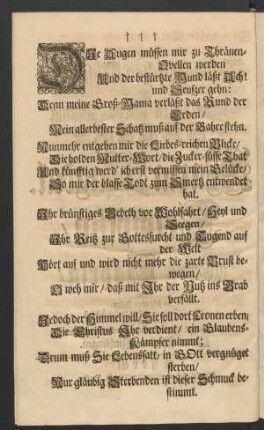 † † †
DIe Augen müssen mir zu Thränen-
Qvellen werden
Und der bestürtzte Mund läßt Ach!
und Seufzer gehn:
Denn meine Groß-Mama verläßt das Rund der
Erden/
Mein allerbester Schatz muß auf der Bahre stehn.
Nunmehr entgehen mir die Liebes-reichen Blicke/
Die holden Mutter-Wort/ die Zucker-süsse That
Und künfftig werd' ich erst vermissen mein Gelücke/
So mir der blasse Tod zum Smertz entwendet
hat.
Ihr brünstiges Gebeth vor Wohlfahrt/ Heyl und
Seegen/
Ihr Reitz zur Gottesfurcht und Tugend auf
der Welt
Hört auf und wird nicht mehr die zarte Brust be-
wegen/
O weh mir/ daß mit Ihr der Nutz ins Grab
verfällt.
Jedoch der Himmel will/ Sie soll dort Cronen erben/
Die Christus Ihr verdient/ ein Glaubens-
Kämpfer nimmt;
Drum muß Sie Lebenssatt/ in GOtt vergnüget
sterben/
Nur gläubig Sterbenden ist dieser Schmuck be-
stimmt.